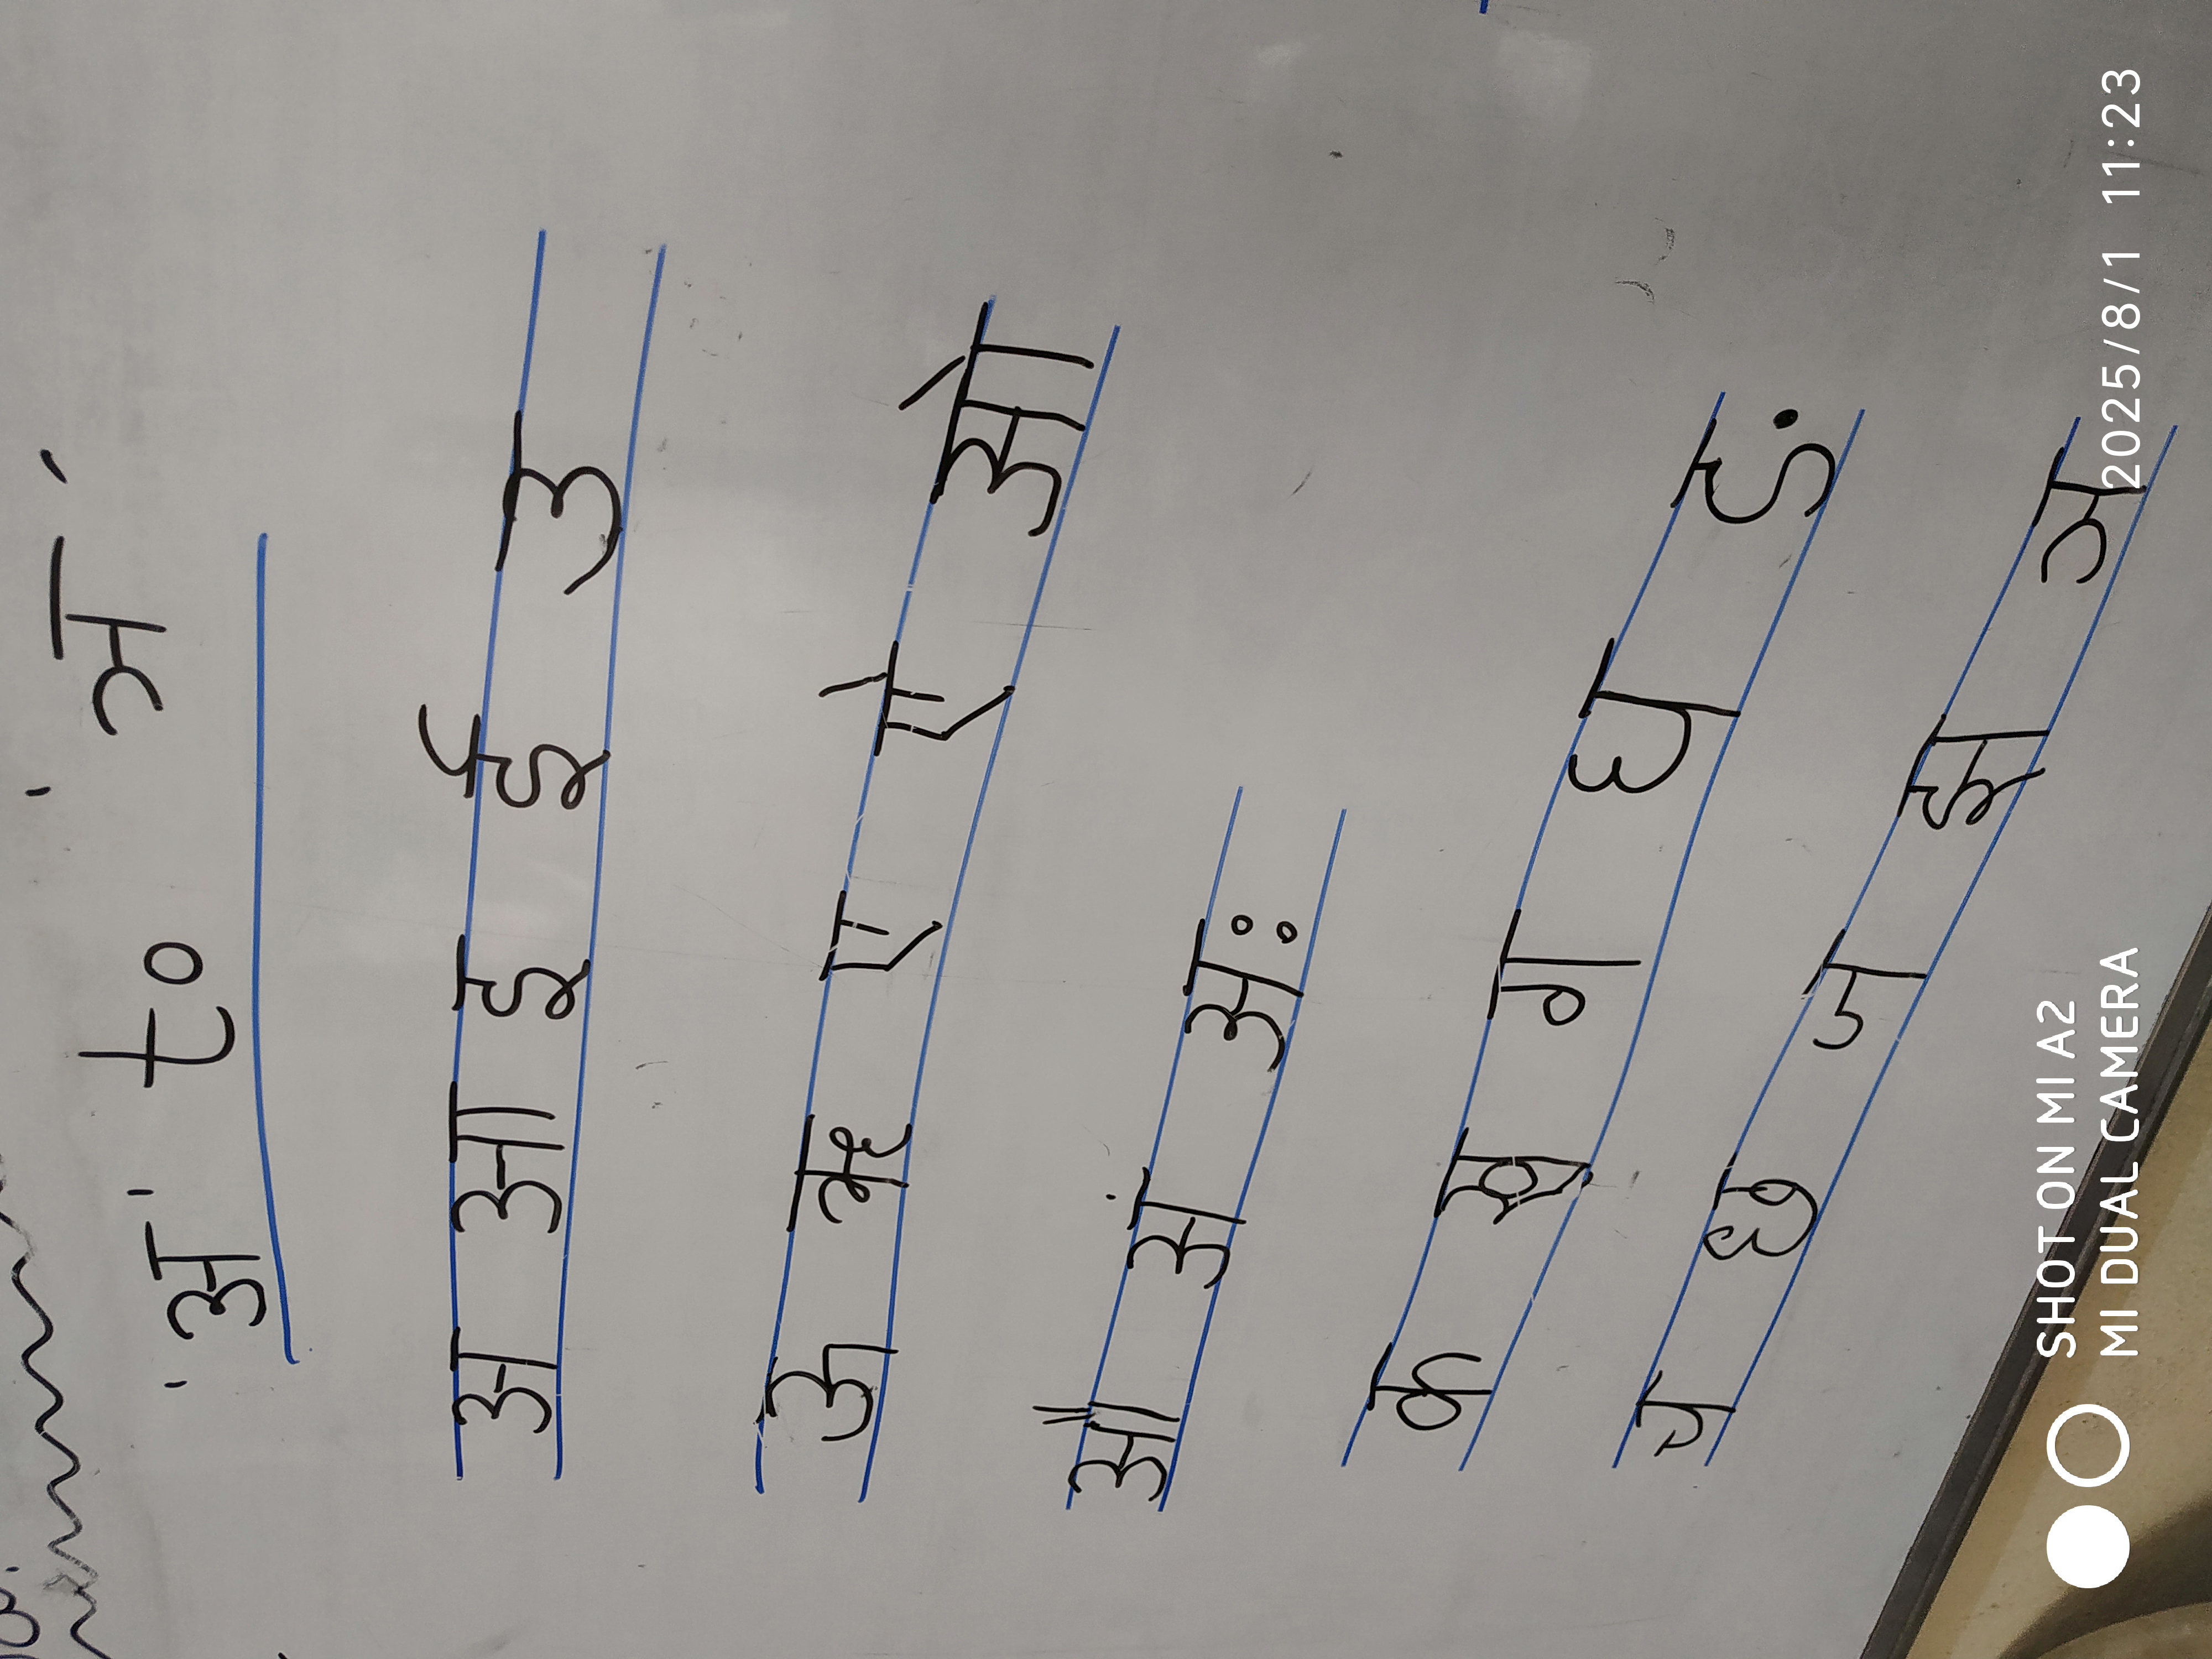 'अ' to 'ञ'
अ आ इ ई उ
ऊ ऋ ए ऐ ओ
औ अं अः
क ख ग घ ङ
च छ ज झ ञ
SHOT ON MI A2
MI DUAL CAMERA
2025/8/1 11:23